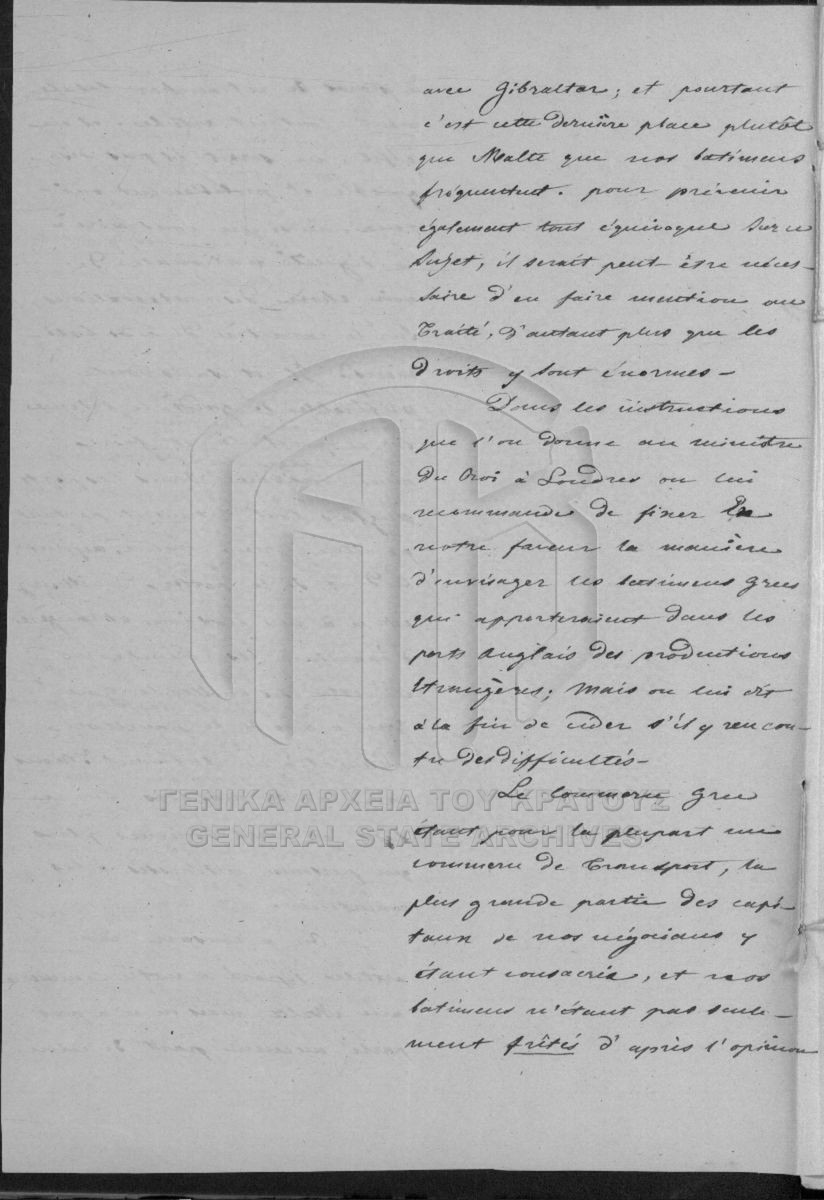 avec Gibraltar; et pourtant
c'est cette dernière place plutôt
que Malte que nos batimens
fréquentent. pour prévenir
également tout équivoque sur ce
sujet, il serait peut être néces-
saire d'en faire mention au
Traité, d'autant plus que les
droits y sont énormes -
Dans les instructions
que l'on donne au ministre
du Roi à Londres on lui
recommande de fixer en
notre faveur la manière
d'envisager les batimens grecs
qui apporteraient dans les
ports Anglais des productions
étrangères; mais on lui dit
à la fin de céder s'il y rencon-
tre des difficultés -
Le Commerce Grec
étant pour la plupart un
commerce de Transport, la
plus grande partie des capi-
taux de nos négocians y
étant consacrée, et nos
batimens n'étant pas seule-
ment frêtés d'après l'opinion
ΓΕΝΙΚΑ ΑΡΧΕΙΑ ΤΟΥ ΚΡΑΤΟΥΣ
GENERAL STATE ARCHIVES